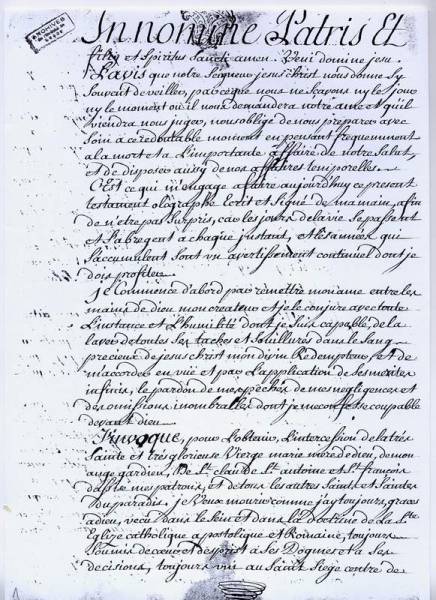 ARCHIVES
In nomine Patris Et
filii et Spiritus Sancti amen. Veni domine jesu.
L'avis que notre Seigneur jesus Christ nous donne Sy
Souvent de veiller, parceque nous ne Sçavons ny le jour
ny le moment où il nous demandera notre ame et qu'il
viendra nous juger, nous oblige de nous preparer avec
Soin a ce redoutable moment en pensant frequemment
a la mort et a L'importante affaire de notre Salut,
et de disposer aussy de nos affaires temporelles.
C'Est ce qui m'engage a faire aujourd'huy ce present
testament olographe Ecrit et Signé de ma main, afin
de n'etre pas Surpris, car les jours de la vie Se passent
et S'abregent a chaque jnstant, et les années qui
S'accumulent Sont un avertissement continuel dont je
dois profiter
je Commence d'abord par remettre mon ame entre les
mains de dieu mon createur et je le conjure avec toute
L'instance et L'humilité dont je Suis capable, de la
laver de toutes Ses taches et Souillures dans le Sang
precieux de jesus Christ mon divin Redempteur, et de
m'accorder en vüe et par L'application de Ses merites
infinis, le pardon de mes pechés de mes negligences et
des omissions inombrables dont je me confesse coupable
devant dieu
J'invoque, pour L'obtenir, L'intercession de la très
Sainte et très glorieuse Vierge marie mere de dieu, de mon
ange gardien, de St. claude St. antoine et St. françois
d'assise mes patrons, et de tous les autres Saints et Saintes
du paradis. je Veux mourir comme j'ay toujours, graces
a dieu, vecu dans le Sein et dans la doctrine de la Ste.
Eglize catholique apostolique et Romaine, toujours
Soumis de coeur et d'esprit a Ses Dogmes et a Ses
decisions, toujours uni au Saint Siege centre de